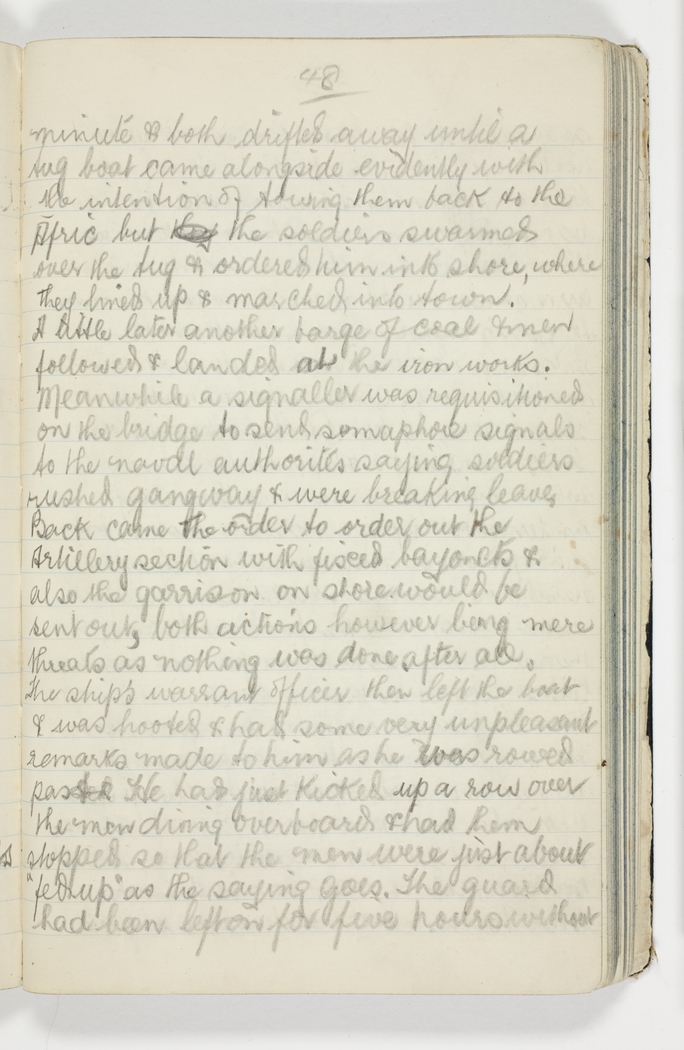 48
minute & both drifted away until a
tug boat came alongside evidently with
the intention of towing them back to the
Afric but the the soldiers swarmed
over the tug & ordered him into shore, where
they lined up & marched into town.
A little later another barge of coal & men
followed & landed at the iron works.
Meanwhile a signaller was requisitioned
on the bridge to send semaphore signals
to the naval authorites saying soldiers
rushed gangway & were breaking leave,
Back came the order to order out the
Artillery section with fixed bayonets &
also the garrison on shore would be
sent out, both actions however being mere
threats as nothing was done after all.
The ship's warrant officer then left the boat
& was hooted & had some very unpleasant
remarks made to him as he was rowed
past He had just kicked up a row over
the men diving overboard & had them
stopped so that the men were just about
"fed up" as the saying goes. The guard
had been left on for five hours without